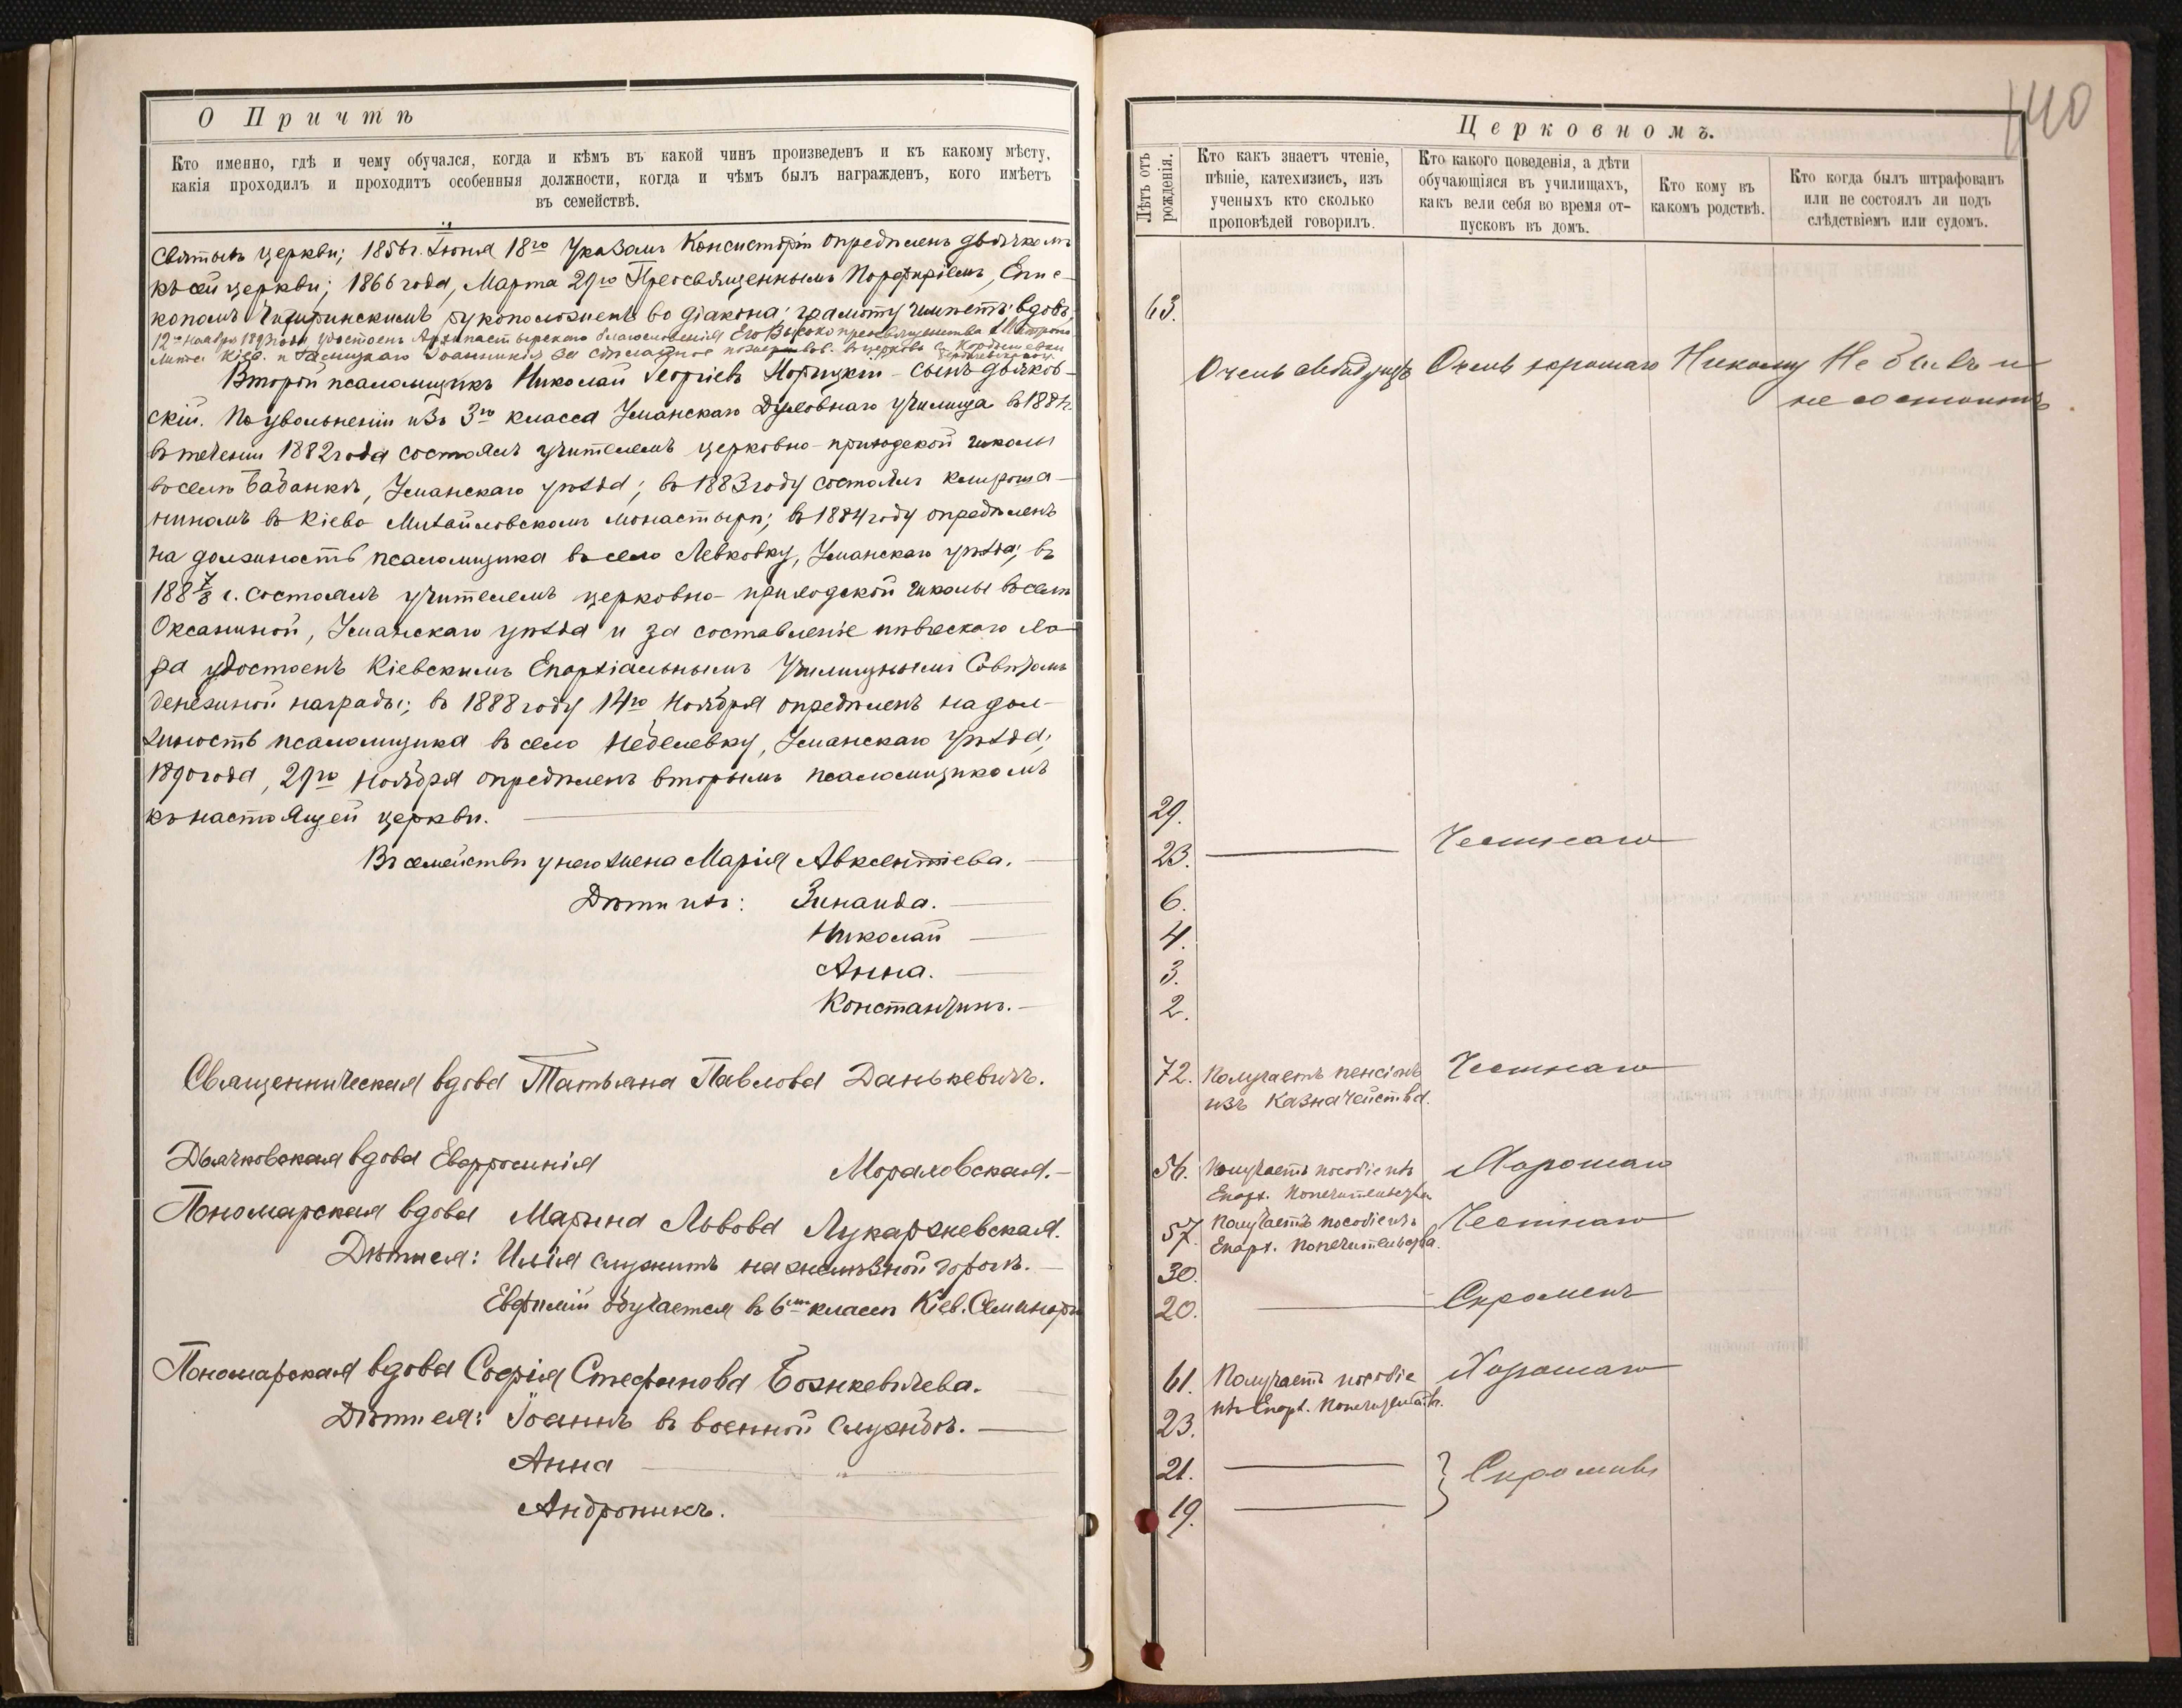 О Причтѣ
Кто именно, гдѣ и чему обучался, когда и кѣмъ въ какой чинъ произведенъ и къ какому мѣсту,
какія проходилъ и проходитъ особенныя должности, когда и чѣмъ былъ награжденъ, кого имѣетъ
въ семействѣ.
святыхъ церкви; 1856 г. Іюня 18го Указомъ Консисторіи опредѣленъ дьячкомъ
къ сей церкви; 1866 года, Марта 29го Преосвященнымъ Порфиріемъ, Епис-
копомъ Чигиринскимъ рукоположенъ во діакона; грамоту имѣетъ; вдовъ.
12го Ноября 189 года удостоенъ Архипастырскаго благословенія Его Высокопреосвященства Митропо
лита Кіев. и Галицкаго Іоанникія за сдѣланное пожертвов. въ церковь с.
Второй псаломщикъ Николай Георгіевъ сынъ дьяков-
скій. По увольненіи изъ 3го класса Уманскаго Духовнаго училища въ 188 г.
въ теченіи 1882 года состоялъ учителемъ церковно-приходской школы
въ селѣ Бабанкѣ, Уманскаго уѣзда; въ 1883 году состоялъ клироша-
ниномъ въ Кіево Михайловскомъ монастырѣ; въ 1884 году опредѣленъ
на должность псаломщика въ село Левковку, Уманскаго уѣзда; въ
188 7/8 г. состоялъ учителемъ церковно-приходской школы въ селѣ
Оксаниной, Уманскаго уѣзда и за составленіе пѣвческаго хо-
ра удостоенъ Кіевскимъ Епархіальнымъ Училищнымъ Совѣтомъ
денежной награды; въ 1888 году 14го Ноября опредѣленъ на дол-
жность псаломщика въ село Неделевку, Уманскаго уѣзда;
1890 года, 29го Ноября опредѣленъ вторымъ псаломщикомъ
къ настоящей церкви.
Въ семействѣ у него жена Марія Авксентіева.
Дѣти ихъ: Зинаида.
Николай
Анна.
Константинъ.
Священническая вдова Татьяна Павлова Данькевичъ.
Дьячковская вдова Евфросинія Мораловская.
Пономарская вдова Марина Львова Лукаржевская.
Дѣти ея: Илія служитъ на желѣзной дорогѣ.
Евфимій обучается въ 6мъ классѣ Кіев. Семинаріи
Пономарская вдова Софія Стефанова Божкевичева.
Дѣти ея: Іоаннъ въ военной службѣ.
Анна
Андроникъ.
140
Церковномъ.
Лѣтъ отъ рожденія.
Кто какъ знаетъ чтеніе,
пѣніе, катехизисъ, изъ
ученыхъ кто сколько
проповѣдей говорилъ.
Кто какого поведенія, а дѣти
обучающіяся въ училищахъ,
какъ вели себя во время от-
пусковъ въ домъ.
Кто кому въ
какомъ родствѣ.
Кто когда былъ штрафованъ
или не состоялъ ли подъ
слѣдствіемъ или судомъ.
63.
Очень свѣдущъ Очень хорошаго Никому Не былъ и
не состоитъ.
29.
23. Честнаго
6.
4.
3.
2.
72. Получаетъ пенсіонъ Честнаго
изъ Казначейства.
56. Получаетъ пособіе изъ Хорошаго
Епарх. Попечительства
57. Получаетъ пособіе изъ Честнаго
Епарх. Попечительства.
30.
20. Скроменъ
61. Получаетъ пособіе Хорошаго
изъ Епарх. Попечительств.
23.
21. Скромны
19.